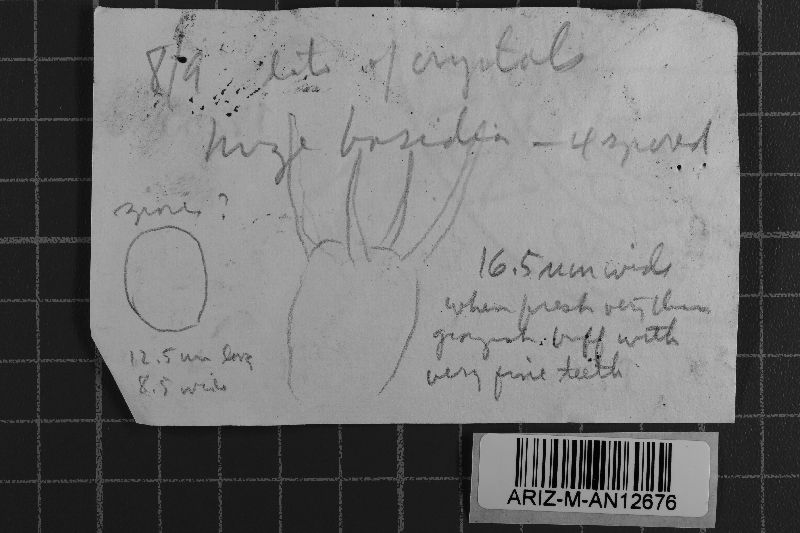 8/9 lots of crystals
huge basidia - 4 spored
spores ?
16.5 um wide
when fresh very thin
grayish buff with
very fine teeth
12.5 um long
8.5 wide
ARIZ-M-AN12676